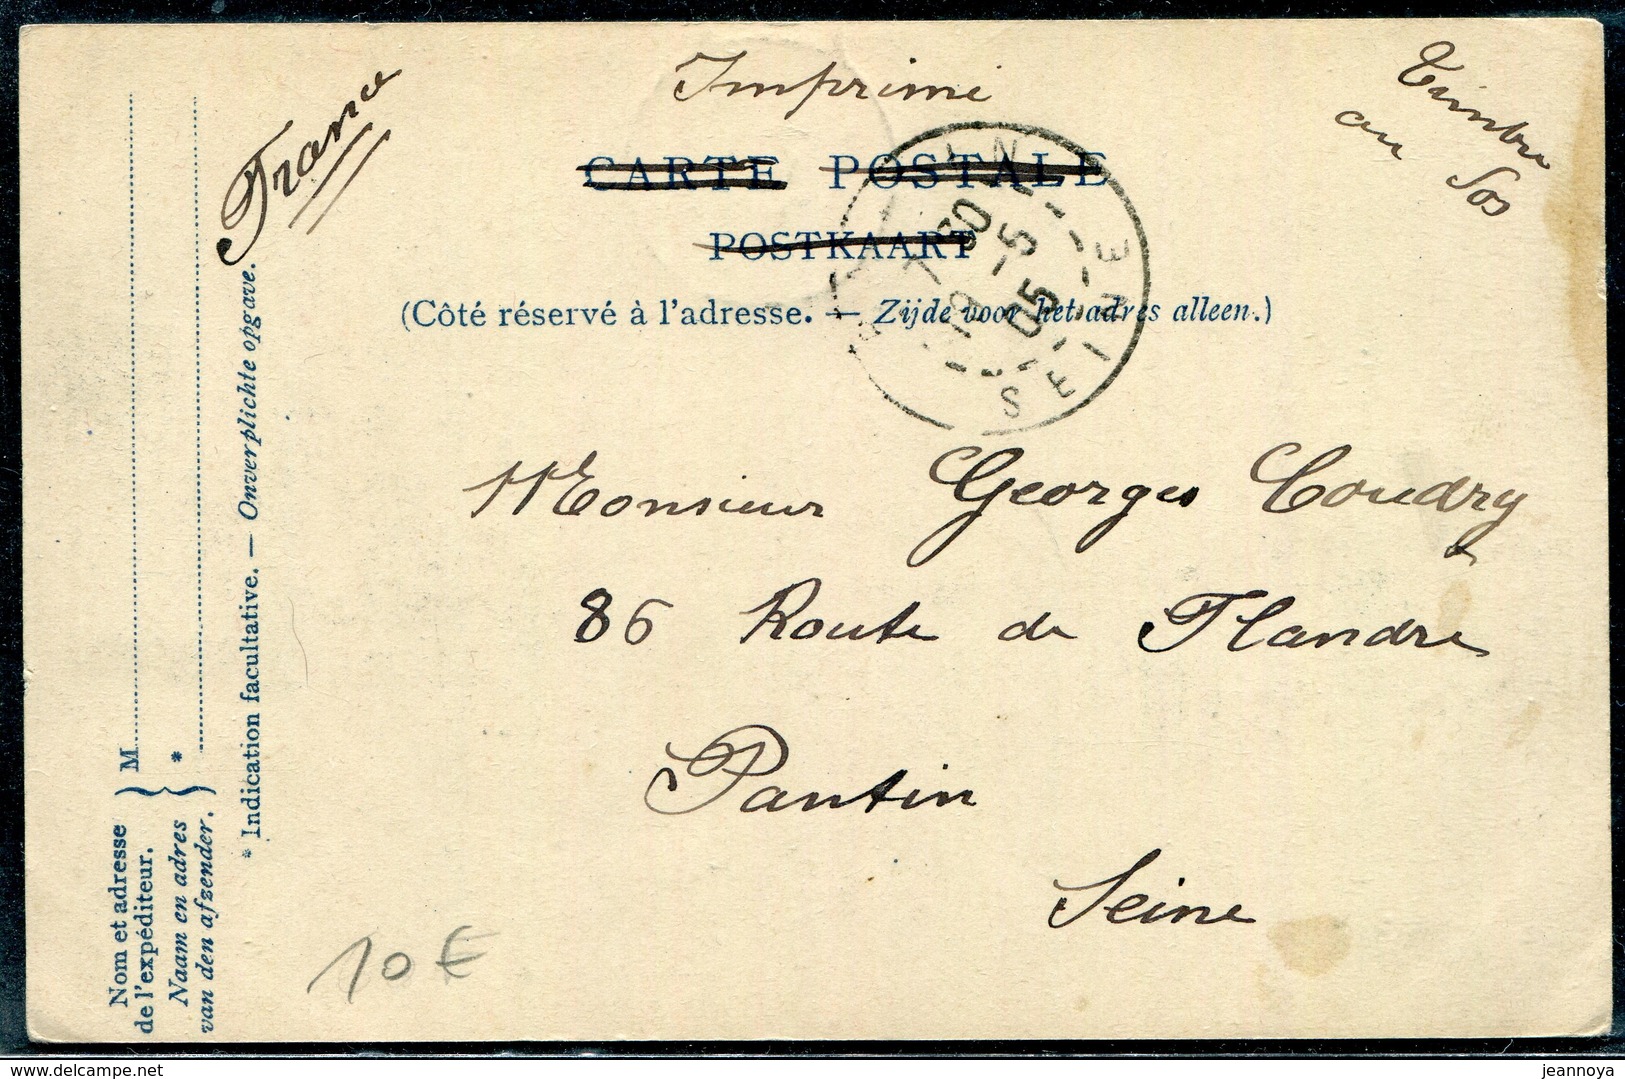 Imprimé
Timbre
au dos
France
CARTE POSTALE
POSTKAART
(Côté réservé à l'adresse. — Zijde voor het adres alleen.)
PANTIN
7 30
19 -5
05
SEINE
Monsieur Georges Coudry
86 Route de Flandre
Pantin
Seine
10 €
Nom et adresse
de l'expéditeur.
Naam en adres
van den afzender.
M
*
* Indication facultative. — Onverplichte opgave.
www.delcampe.net
jeannoya